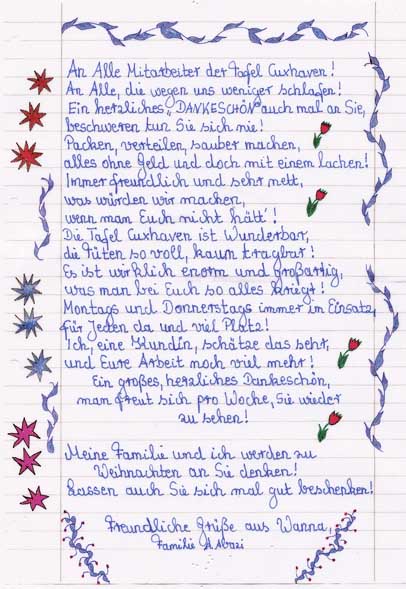 An Alle Mitarbeiter der Tafel Cuxhaven!
An Alle, die wegen uns weniger schlafen!
Ein herzliches "DANKESCHÖN" auch mal an Sie,
beschweren tun Sie sich nie!
Packen, verteilen, sauber machen,
alles ohne Geld und doch mit einem lachen!
Immer freundlich und sehr nett,
was würden wir machen,
wenn man Euch nicht hätt'!
Die Tafel Cuxhaven ist Wunderbar,
die Tüten so voll, kaum tragbar!
Es ist wirklich enorm und großartig,
was man bei Euch so alles kriegt!
Montags und Donnerstags immer im Einsatz,
für Jeden da und viel Platz!
Ich, eine Kundin, schätze das sehr,
und Eure Arbeit noch viel mehr!
Ein großes, herzliches Dankeschön,
man freut sich pro Woche, Sie wieder
zu sehen!
Meine Familie und ich werden zu
Weihnachten an Sie denken!
Lassen auch Sie sich mal gut beschenken!
Freundliche Grüße aus Wanna,
Familie